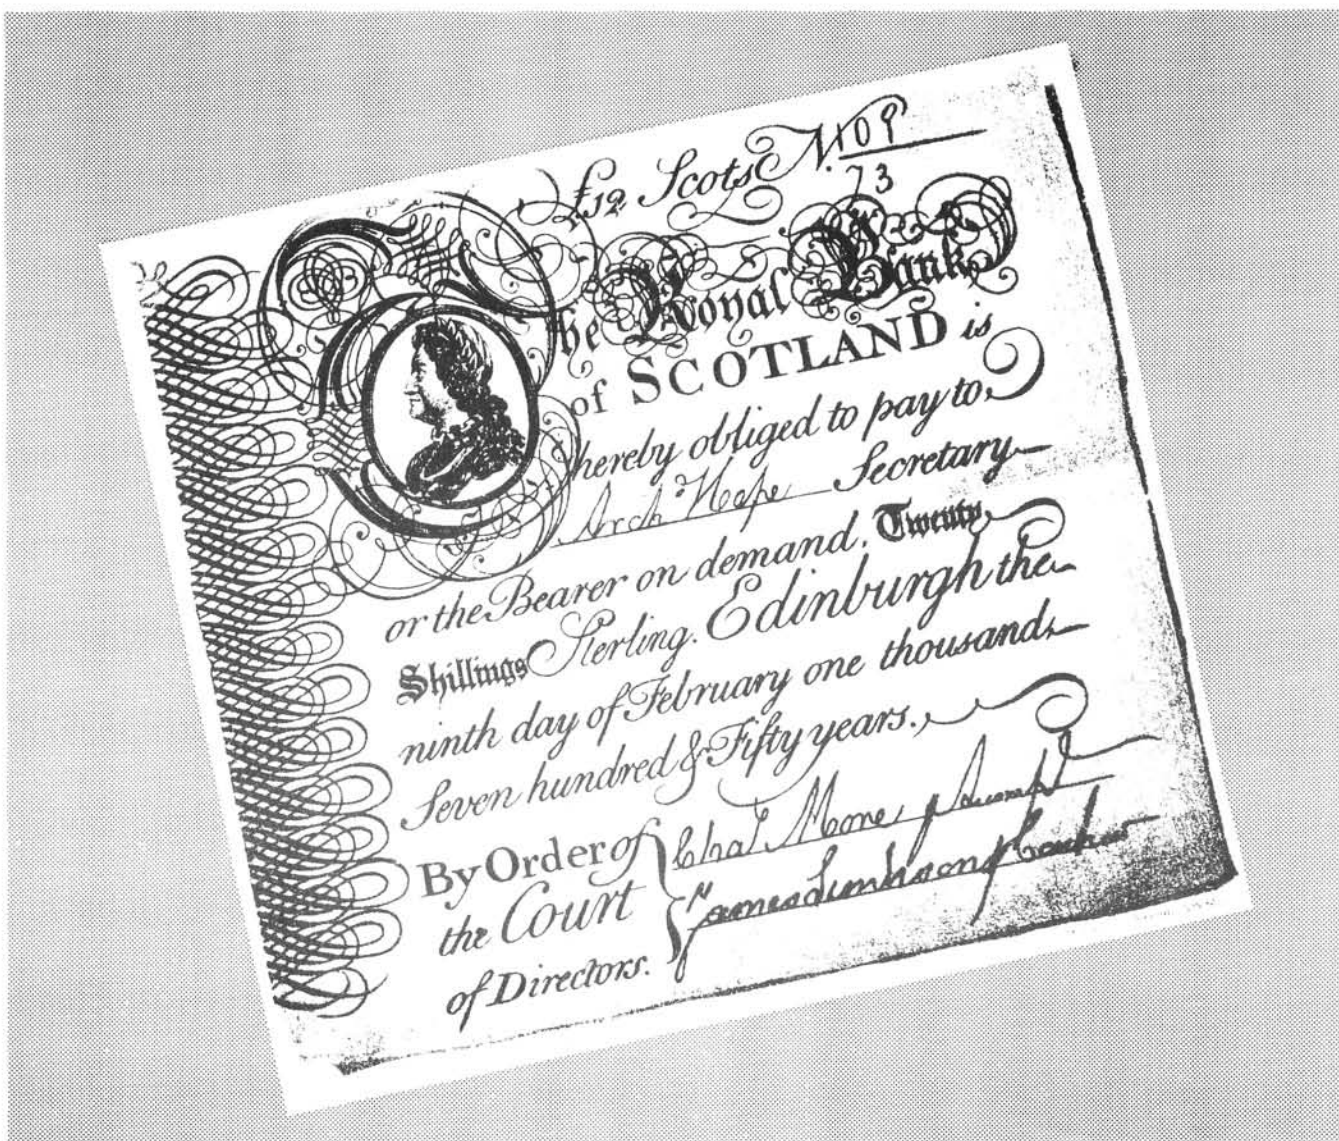 £12 Scots N. 109
73
The Royal Bank
of SCOTLAND is
hereby obliged to pay to
Arch Hope Secretary
or the Bearer on demand, Twenty
Shillings Sterling. Edinburgh the
ninth day of February one thousand
Seven hundred & Fifty years.
By Order of
the Court
of Directors.
James